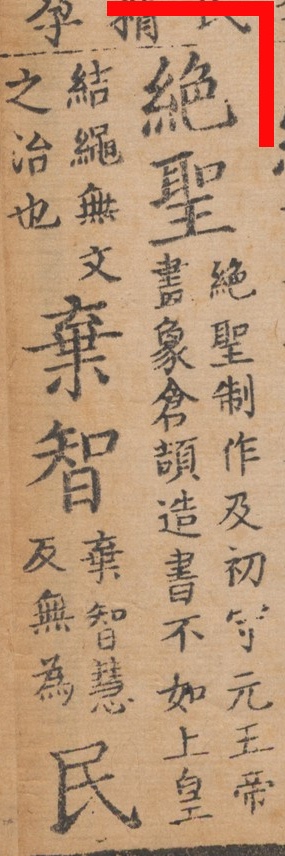 絶聖
絶聖制作及初守元王帝
畫象倉頡造書不如上皇
結繩無文
之治也
棄智
棄智慧
反無為
民